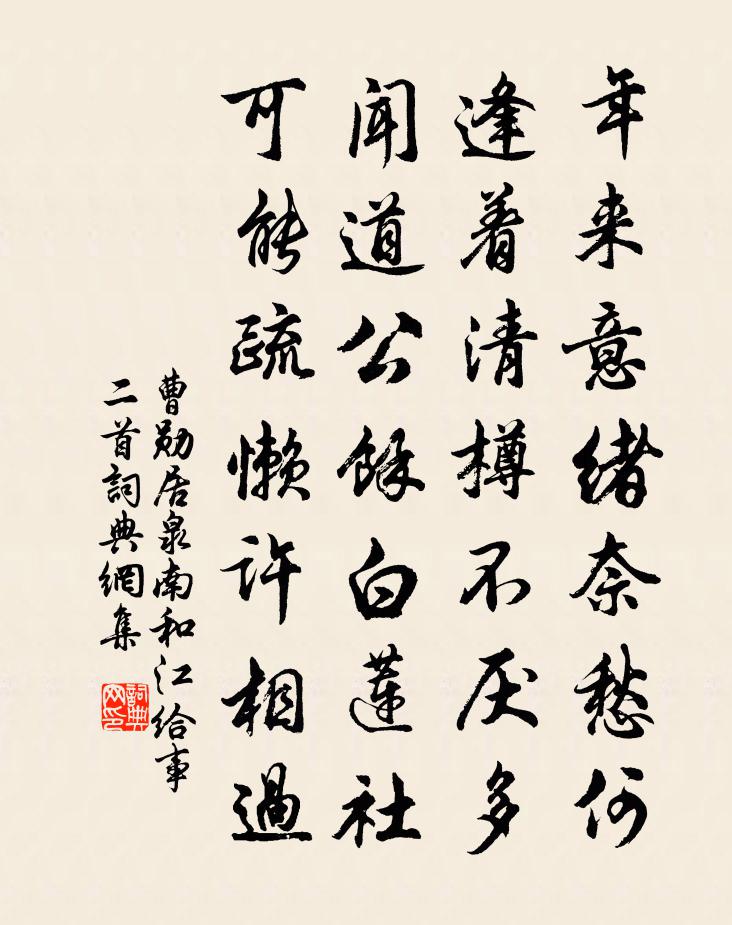 年来意绪奈愁何
逢着清樽不厌多
闻道公馀白莲社
可能疏懒许相過
曹勋居泉南和江给事
二首詞典網集
詞典
网印